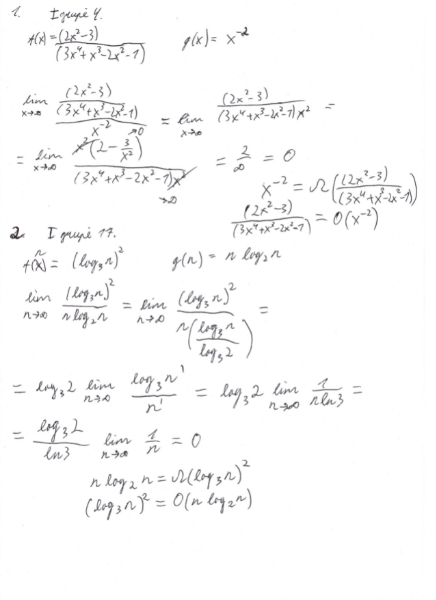 1. I grupė 4.
f(x) = (2x²-3) / (3x⁴+x³-2x²-1) g(x) = x⁻²
lim x→∞ ((2x²-3) / (3x⁴+x³-2x²-1)) / x⁻² →0 = lim x→∞ (2x²-3) / ((3x⁴+x³-2x²-1)x²) =
= lim x→∞ x²(2-3/x²) / ((3x⁴+x³-2x²-1)x²) →∞ = 2/∞ = 0
x⁻² = Ω((2x²-3) / (3x⁴+x³-2x²-1))
(2x²-3) / (3x⁴+x³-2x²-1) = O(x⁻²)
2. I grupė 17.
f(n) = (log₃n)² g(n) = n log₂n
lim n→∞ (log₃n)² / (n log₂n) = lim n→∞ (log₃n)² / (n(log₃n / log₃2)) =
= log₃2 lim n→∞ log₃n' / n' = log₃2 lim n→∞ 1 / (n ln3) =
= log₃2 / ln3 lim n→∞ 1/n = 0
n log₂ n = Ω(log₃n)²
(log₃n)² = O(n log₂n)